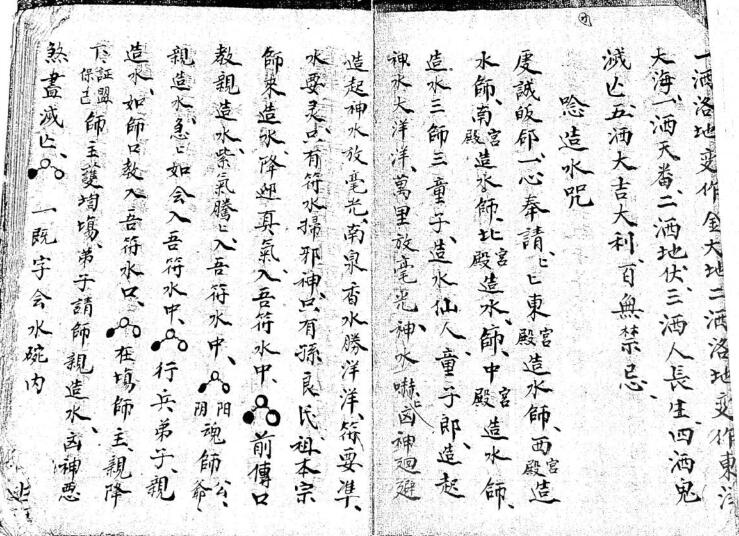 一洒洛地变作金大地二洒洛地变作東洋
大海、一洒天番、二洒地伏、三洒人長生、四洒鬼
滅亡、五洒大吉大利、百無禁忌、
唸造水咒
虔誠皈邱、一心奉請、〻東宮殿造水師、西宮殿造
水師、南宮殿造水師、北宮殿造水師、中宮殿造水師、
造水三師三童子、造水仙人童子郎、造起
神水大洋洋、萬里放毫光、神水嚇〻凶神廻避
造起神水放毫光、南泉香水勝洋洋、符要準、
水要灵、只有符水掃邪神、只有孫良氏祖本宗
師來造水、降迎真氣入吾符水中、前傳口
教親造水、紫氣騰〻入吾符水中、阳阴魂師爺公、
親造水、急〻如会入吾符水中、行兵弟子、親
造水、如師口教入吾符水口、在塲師主、親降
下証盟保吉師主護坛塲、弟子請師親造水、凶神惡
煞盡滅亡、一既字会水碗内